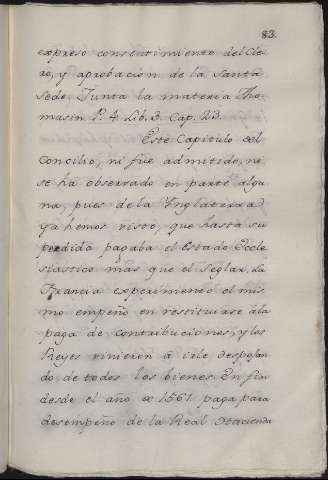 83.
expreso consentimiento del Cle
ro, y aprobacion de la Santa
Sede. Junta la materia Tho
masin P. 4. Lib. 3. Cap. 23.
Este Capitulo del
Concilio, ni fue admitido, ni
se ha observado en parte algu
na, pues de la Ynglaterra
ya hemos visto, que hasta su
perdida pagaba el Estado Eccle
siastico mas que el Seglar. La
Francia experimentó el mis
mo empeño en resistirse á la
paga de contribuciones, y los
Reyes vinieron á irle despojan
do de todos los bienes. En fin
desde el año de 1561 paga para
desempeño de la Real Hacienda